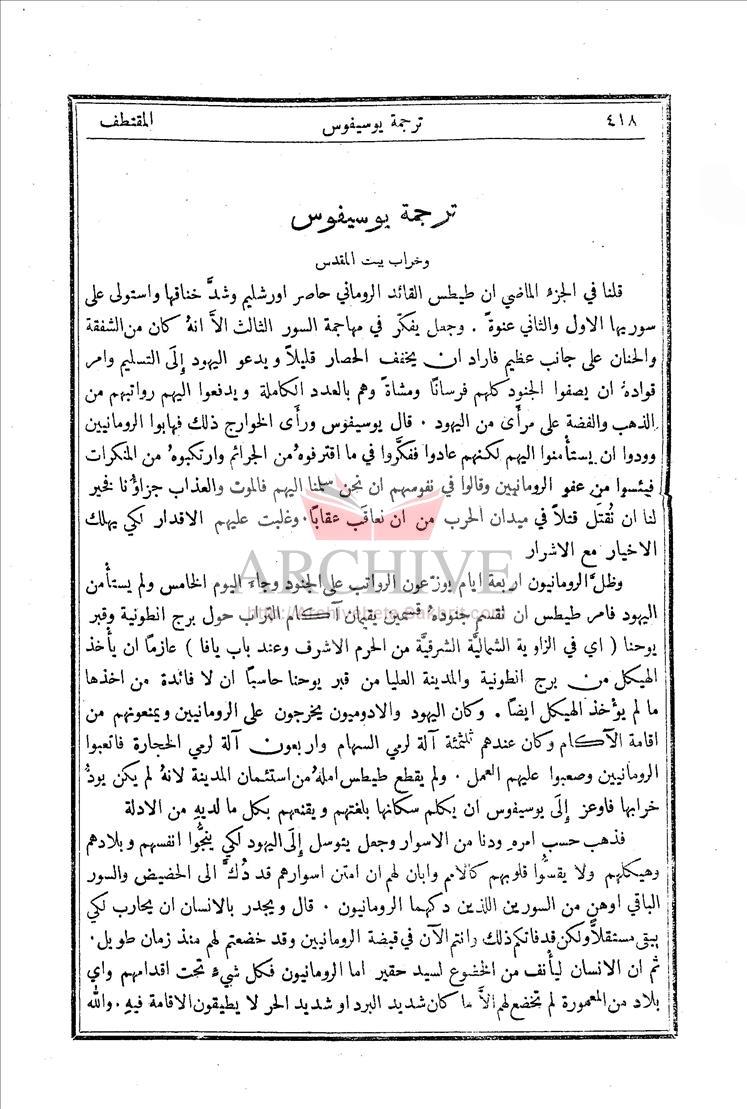 ٤١٨ ترجمة يوسيفوس المقتطف
ترجمة يوسيفوس
وخراب بيت المقدس
قلنا في الجزء الماضي ان طيطس القائد الروماني حاصر اورشليم وشدَّ خناقها واستولى على
سوريها الاول والثاني عنوةً . وجعل يفكّر في مهاجمة السور الثالث الاَّ انهُ كان من الشفقة
والحنان على جانب عظيم فاراد ان يخفف الحصار قليلاً ويدعو اليهود إِلَى التسليم وامر
قوادهُ ان يصفوا الجنود كلهم فرسانًا ومشاةً وهم بالعدد الكاملة ويدفعوا اليهم رواتبهم من
الذهب والفضة على مرأَى من اليهود . قال يوسيفوس ورأَى الخوارج ذلك فهابوا الرومانيين
وودوا ان يستأْمنوا اليهم لكنهم عادوا ففكَّروا في ما اقترفوهُ من الجرائم وارتكبوهُ من المنكرات
فيئسوا من عفو الرومانيين وقالوا في نفوسهم ان نحن سلمنا اليهم فالموت والعذاب جزاؤُنا فخير
لنا ان نُقتَل قتلاً في ميدان الحرب من ان نعاقب عقابًا . وغلبت عليهم الاقدار لكي يهلك
الاخيار مع الاشرار
ARCHIVE
وظلَّ الرومانيون اربعة ايام يوزّعون الرواتب على الجنود وجاءَ اليوم الخامس ولم يستأْمن
اليهود فامر طيطس ان تقسم جنودهُ قسمين يقيمان آكام التراب حول برج انطونية وقبر
http://Archivebeta.Sakhrit.com
يوحنا ( اي في الزاوية الشماليَّة الشرقيَّة من الحرم الاشرف وعند باب يافا ) عازمًا ان يأْخذ
الهيكل من برج انطونية والمدينة العليا من قبر يوحنا حاسبًا ان لا فائدة من اخذها
ما لم يؤْخذ الهيكل ايضاً . وكان اليهود والادوميون يخرجون على الرومانيين ويمنعونهم من
اقامة الآكام وكان عندهم ثلثمئة آلة لرمي السهام واربعون آلة لرمي الحجارة فاتعبوا
الرومانيين وصعبوا عليهم العمل . ولم يقطع طيطس املهُ من استئمان المدينة لانهُ لم يكن يودُّ
خرابها فاوعز إِلَى يوسيفوس ان يكلم سكانها بلغتهم و يقنعهم بكل ما لديهِ من الادلة
فذهب حسب امرهِ ودنا من الاسوار وجعل يتوسل إِلَى اليهود لكي ينجُّوا انفسهم وبلادهم
وهيكلهم ولا يقسُّوا قلوبهم كالامم وابان لهم ان امتن اسوارهم قد دُكَّ الى الحضيض والسور
الباقي اوهن من السورين اللذين دكهما الرومانيون . قال ويجدر بالانسان ان يحارب لكي
يبقى مستقلاًّ ولكن قد فاتكم ذلك وانتم الآن في قبضة الرومانيين وقد خضعتم لهم منذ زمان طويل .
ثم ان الانسان ليأْنف من الخضوع لسيد حقير اما الرومانيون فكل شيءٍ تحت اقدامهم واي
بلاد من المعمورة لم تخضع لهم الاَّ ما كان شديد البرد او شديد الحر لا يطيقون الاقامة فيهِ . والله